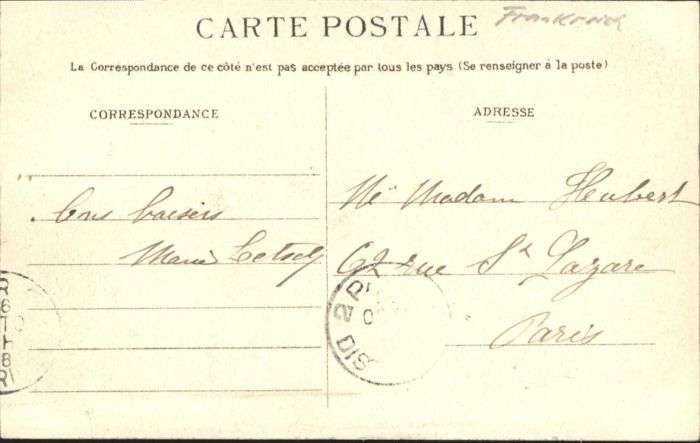 CARTE POSTALE
Frankreich
La Correspondance de ce côté n'est pas acceptée par tous les pays (Se renseigner à la poste)
CORRESPONDANCE
Bons baisers
Marie
ADRESSE
Mr Madam Hubert
62 rue St Lazare
Paris
DIS